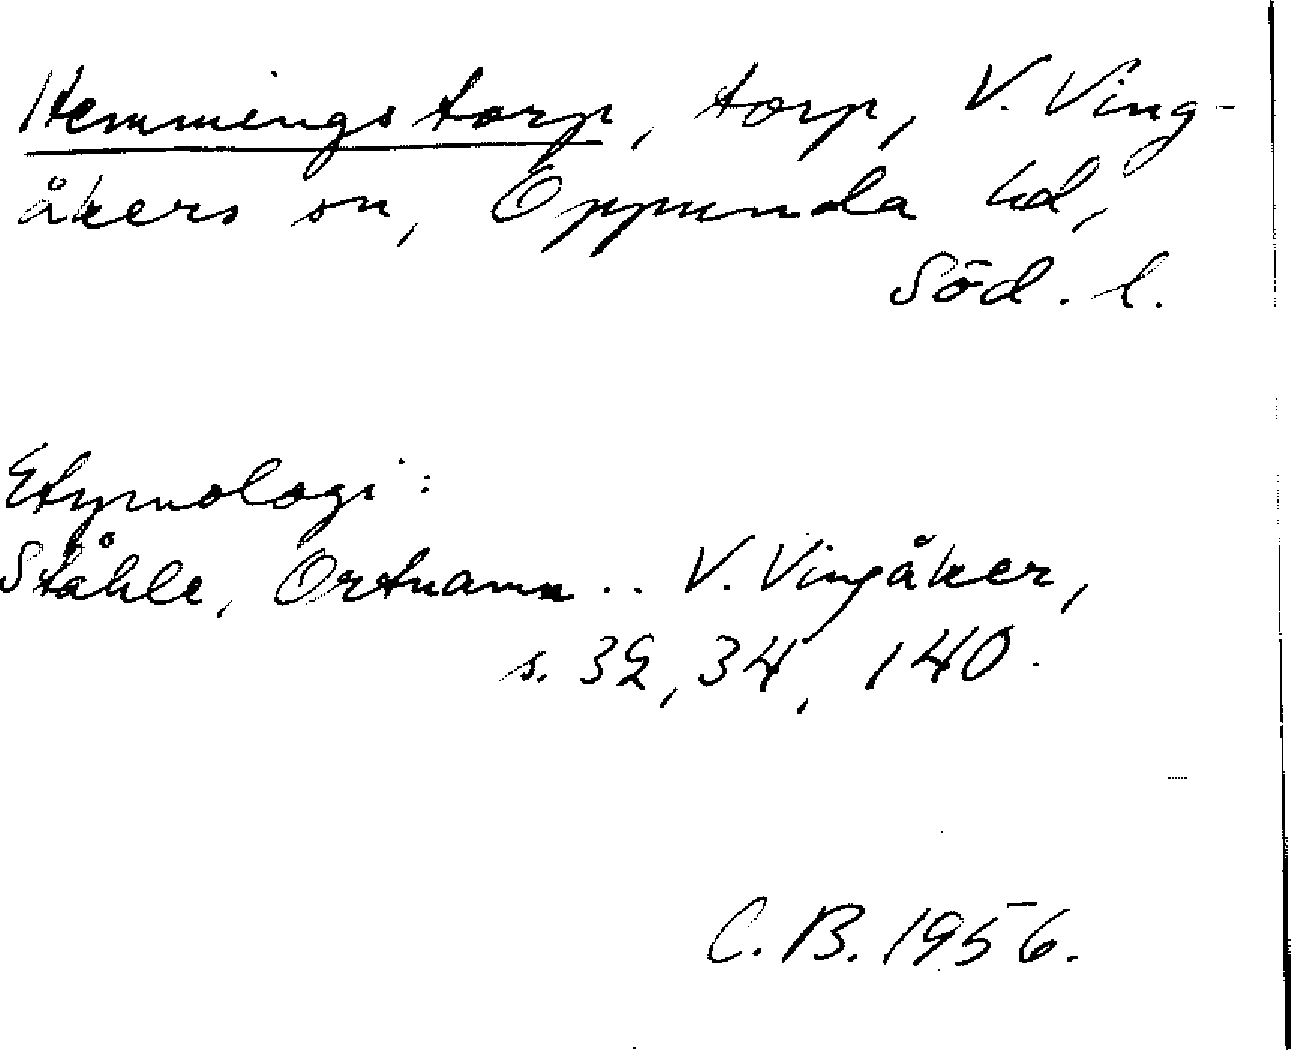 Hemmingstorp, torp, V. Ving-
åkers sn, Oppunda hd,
Söd. l.
Etymologi:
Ståhle, Ortnamn .. V. Vingåker,
s. 32, 34, 140.
C. B. 1956.